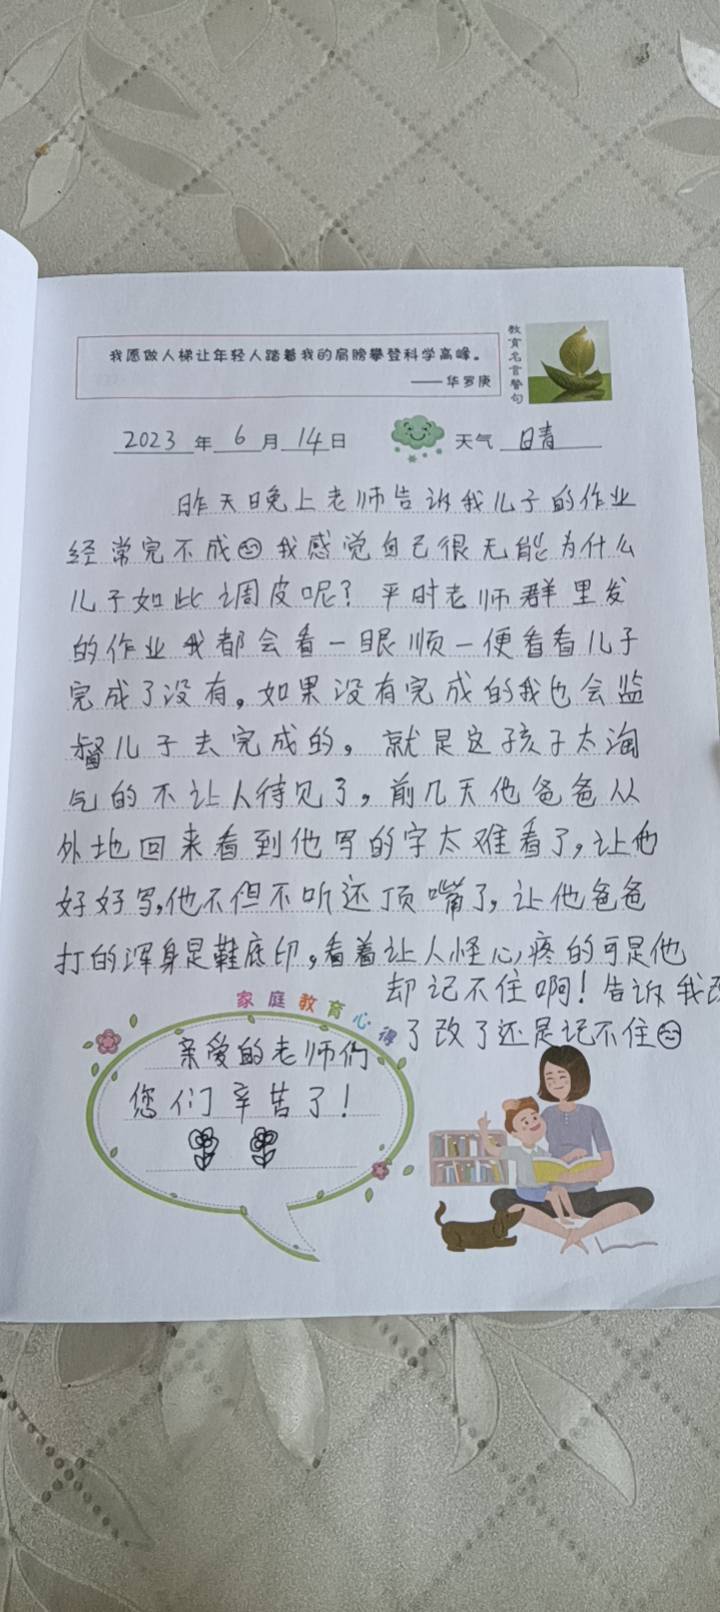 我愿做人梯让年轻人踏着我的肩膀攀登科学高峰。
——华罗庚
教育名言警句
2023年6月14日 天气 晴
昨天晚上老师告诉我儿子的作业
经常完不成☹我感觉自己很无能为什么
儿子如此调皮呢?平时老师群里发
的作业我都会看一眼顺一便看看儿子
完成了没有。如果没有完成的我也会监
督儿子去完成的。就是这孩子太淘
气的不让人待见了,前几天他爸爸从
外地回来看到他写的字太难看了,让他
好好写,他不但不听还顶嘴了,让他爸爸
打的浑身是鞋底印,看着让人怪心疼的可是他
却记不住啊!告诉我改
了改了还是记不住☹
家庭教育心得
亲爱的老师们
您们辛苦了!